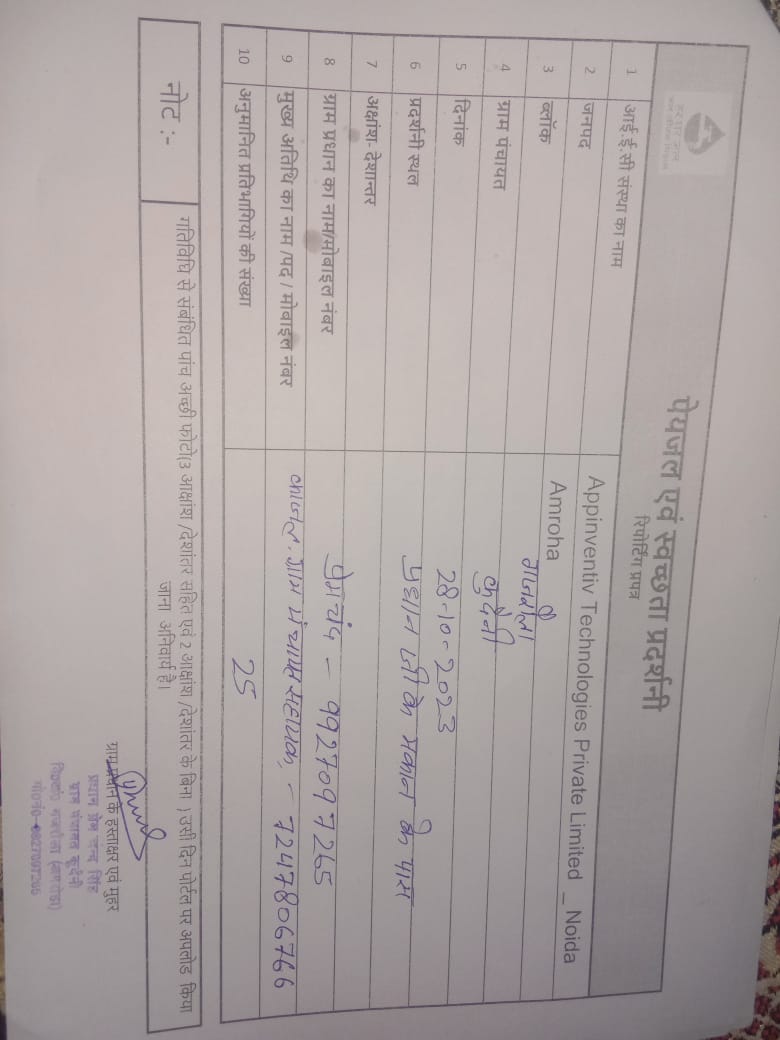 पेयजल एवं स्वच्छता प्रदर्शनी
रिपोर्टिंग प्रपत्र
1 आई.ई.सी संस्था का नाम Appinventiv Technologies Private Limited _ Noida
2 जनपद Amroha
3 ब्लॉक गजरौला
4 ग्राम पंचायत कुदैनी
5 दिनांक 28-10-2023
6 प्रदर्शनी स्थल प्रधान जी के मकान के पास
7 अक्षांश- देशान्तर
8 ग्राम प्रधान का नाम/मोबाइल नंबर प्रेमचंद - 9927097265
9 मुख्य अतिथि का नाम /पद / मोबाइल नंबर काजल. ग्राम पंचायत सहायक, - 7247806766
10 अनुमानित प्रतिभागियों की संख्या 25
नोट :- गतिविधि से संबंधित पांच अच्छी फोटो(3 आक्षांश /देशांतर सहित एवं 2 आक्षांश /देशांतर के बिना ) उसी दिन पोर्टल पर अपलोड किया
जाना अनिवार्य है।
ग्राम प्रधान के हस्ताक्षर एवं मुहर
प्रधान प्रेम चन्द सिंह
ग्राम पंचायत कुदैनी